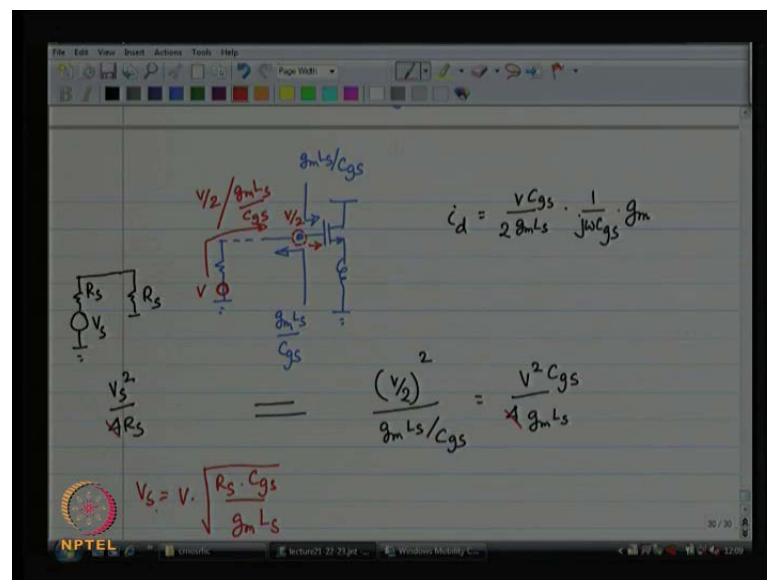 File Edit View Insert Actions Tools Help
Page Width
B I
gmLs/Cgs
V/2 / gmLs/Cgs
V/2
V
id = VCgs/2gmLs · 1/jωCgs · gm
Rs
Vs
Rs
gmLs/Cgs
Vs²/4Rs = (V/2)²/gmLs/Cgs = V²Cgs/4gmLs
Vs = V. √Rs.Cgs/gmLs
30/30
NPTEL
cmosrfic
lecture21-22-23.jnt - ...
Windows Mobility C...
12:09